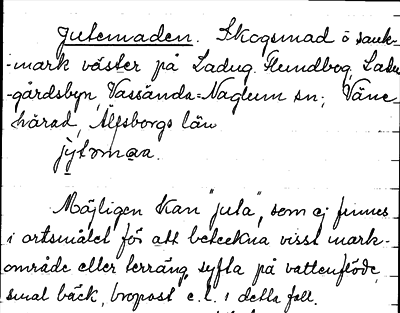 Jutemaden. Skogsmad ö sank-
-mark väster på Ladug. Flundbog, Ladu
-gårdsbyn, Vassända-Naglum sn; Väne
härad, Älfsborgs län
jytəmaa.
Möjligen kan "juta", som ej finnes
i ortsmålet för att beteckna visst mark-
område eller terräng, syfta på vattenflöde,
smal bäck, bropost e.l. i detta fall.